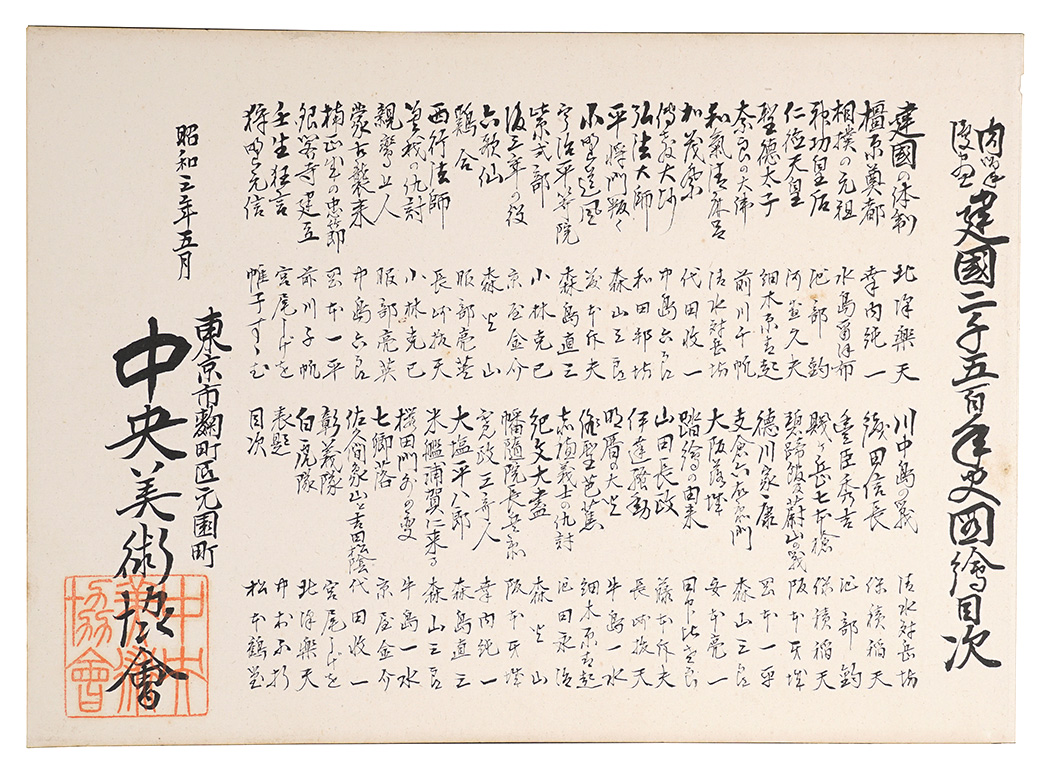 内容復画 建國二千五百年史図繪目次
建國の体制 北澤樂天
橿原奠都 幸内純一
相撲の元祖 水島爾保布
神功皇后 池部釣
仁徳天皇 河盛久夫
聖徳太子 細木原青起
奈良の大佛 前川千帆
和氣清麻呂 清水対岳坊
加茂祭 代田收一
傳教大師 中島六郎
弘法大師 和田邦坊
平将門叛く 森山三郎
小野道風 藤本斥夫
宇治平等院 森島直三
紫式部 小林克己
後三年の役 京屋金介
六歌仙 森火山
鶏合 服部亮英
西行法師 長崎抜天
曽我の仇討 小林克己
親鸞上人 服部亮英
蒙古襲来 中島六郎
楠正成の忠節 岡本一平
銀客寺建立 前川千帆
壬生狂言 宮尾しげを
狩野元信 帷子すゝむ
川中島の戦 清水対岳坊
織田信長 保積稲天
豊臣秀吉 池部釣
賤ヶ岳七本槍 保積稲天
碧蹄館及蔚山の戦 阪本牙城
徳川家康 岡本一平
支倉六右衛門 森山三郎
大阪落城 安本亮一
踏繪の由来 田中比左良
山田長政 藤本斥夫
伊達騒動 長崎抜天
明暦の大火 牛島一水
俳聖芭蕉 細木原青起
赤穂義士の仇討 池田永治
紀文大盡 森火山
幡随院長兵衛 阪本牙城
寛政三奇人 幸内純一
大塩平八郎 森島直三
米艦浦賀に来る 森山三郎
桜田門外の変 牛島一水
七卿落 京屋金介
佐久間象山と吉田松陰 代田收一
彰義隊 宮尾しげを
白虎隊 北澤樂天
表題 中村不折
目次 松本鶴堂
昭和三年五月
東京市麹町区元園町
中央美術協會
中央美術協會